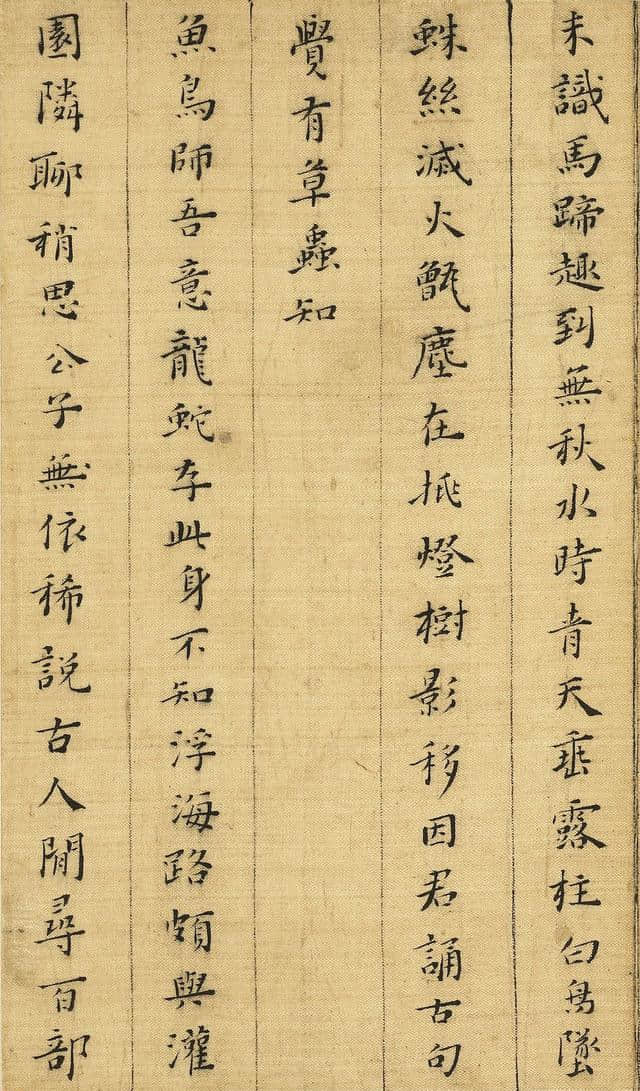 未識馬蹄趣到無秋水時青天垂露柱白鳥墜
蛛絲滅火甑塵在挑燈樹影移因君誦古句
覺有草蟲知
魚鳥師吾意龍蛇存此身不知浮海路頗與灌
園隣聊稍思公子無依稀說古人閒尋百部